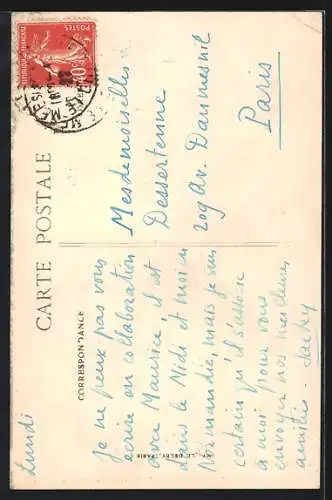 CARTE POSTALE
CORRESPONDANCE
Lundi
Je ne peux pas vous
écrire en collaboration
avec Maurice il est
dans le Midi et moi en
Normandie, mais je suis
certain qu'il s'associe
à moi pour vous
envoyer nos meilleures
amitiés.
Mesdemoiselles
Dessertenne
209 Av. Daumesnil
Paris
POSTES